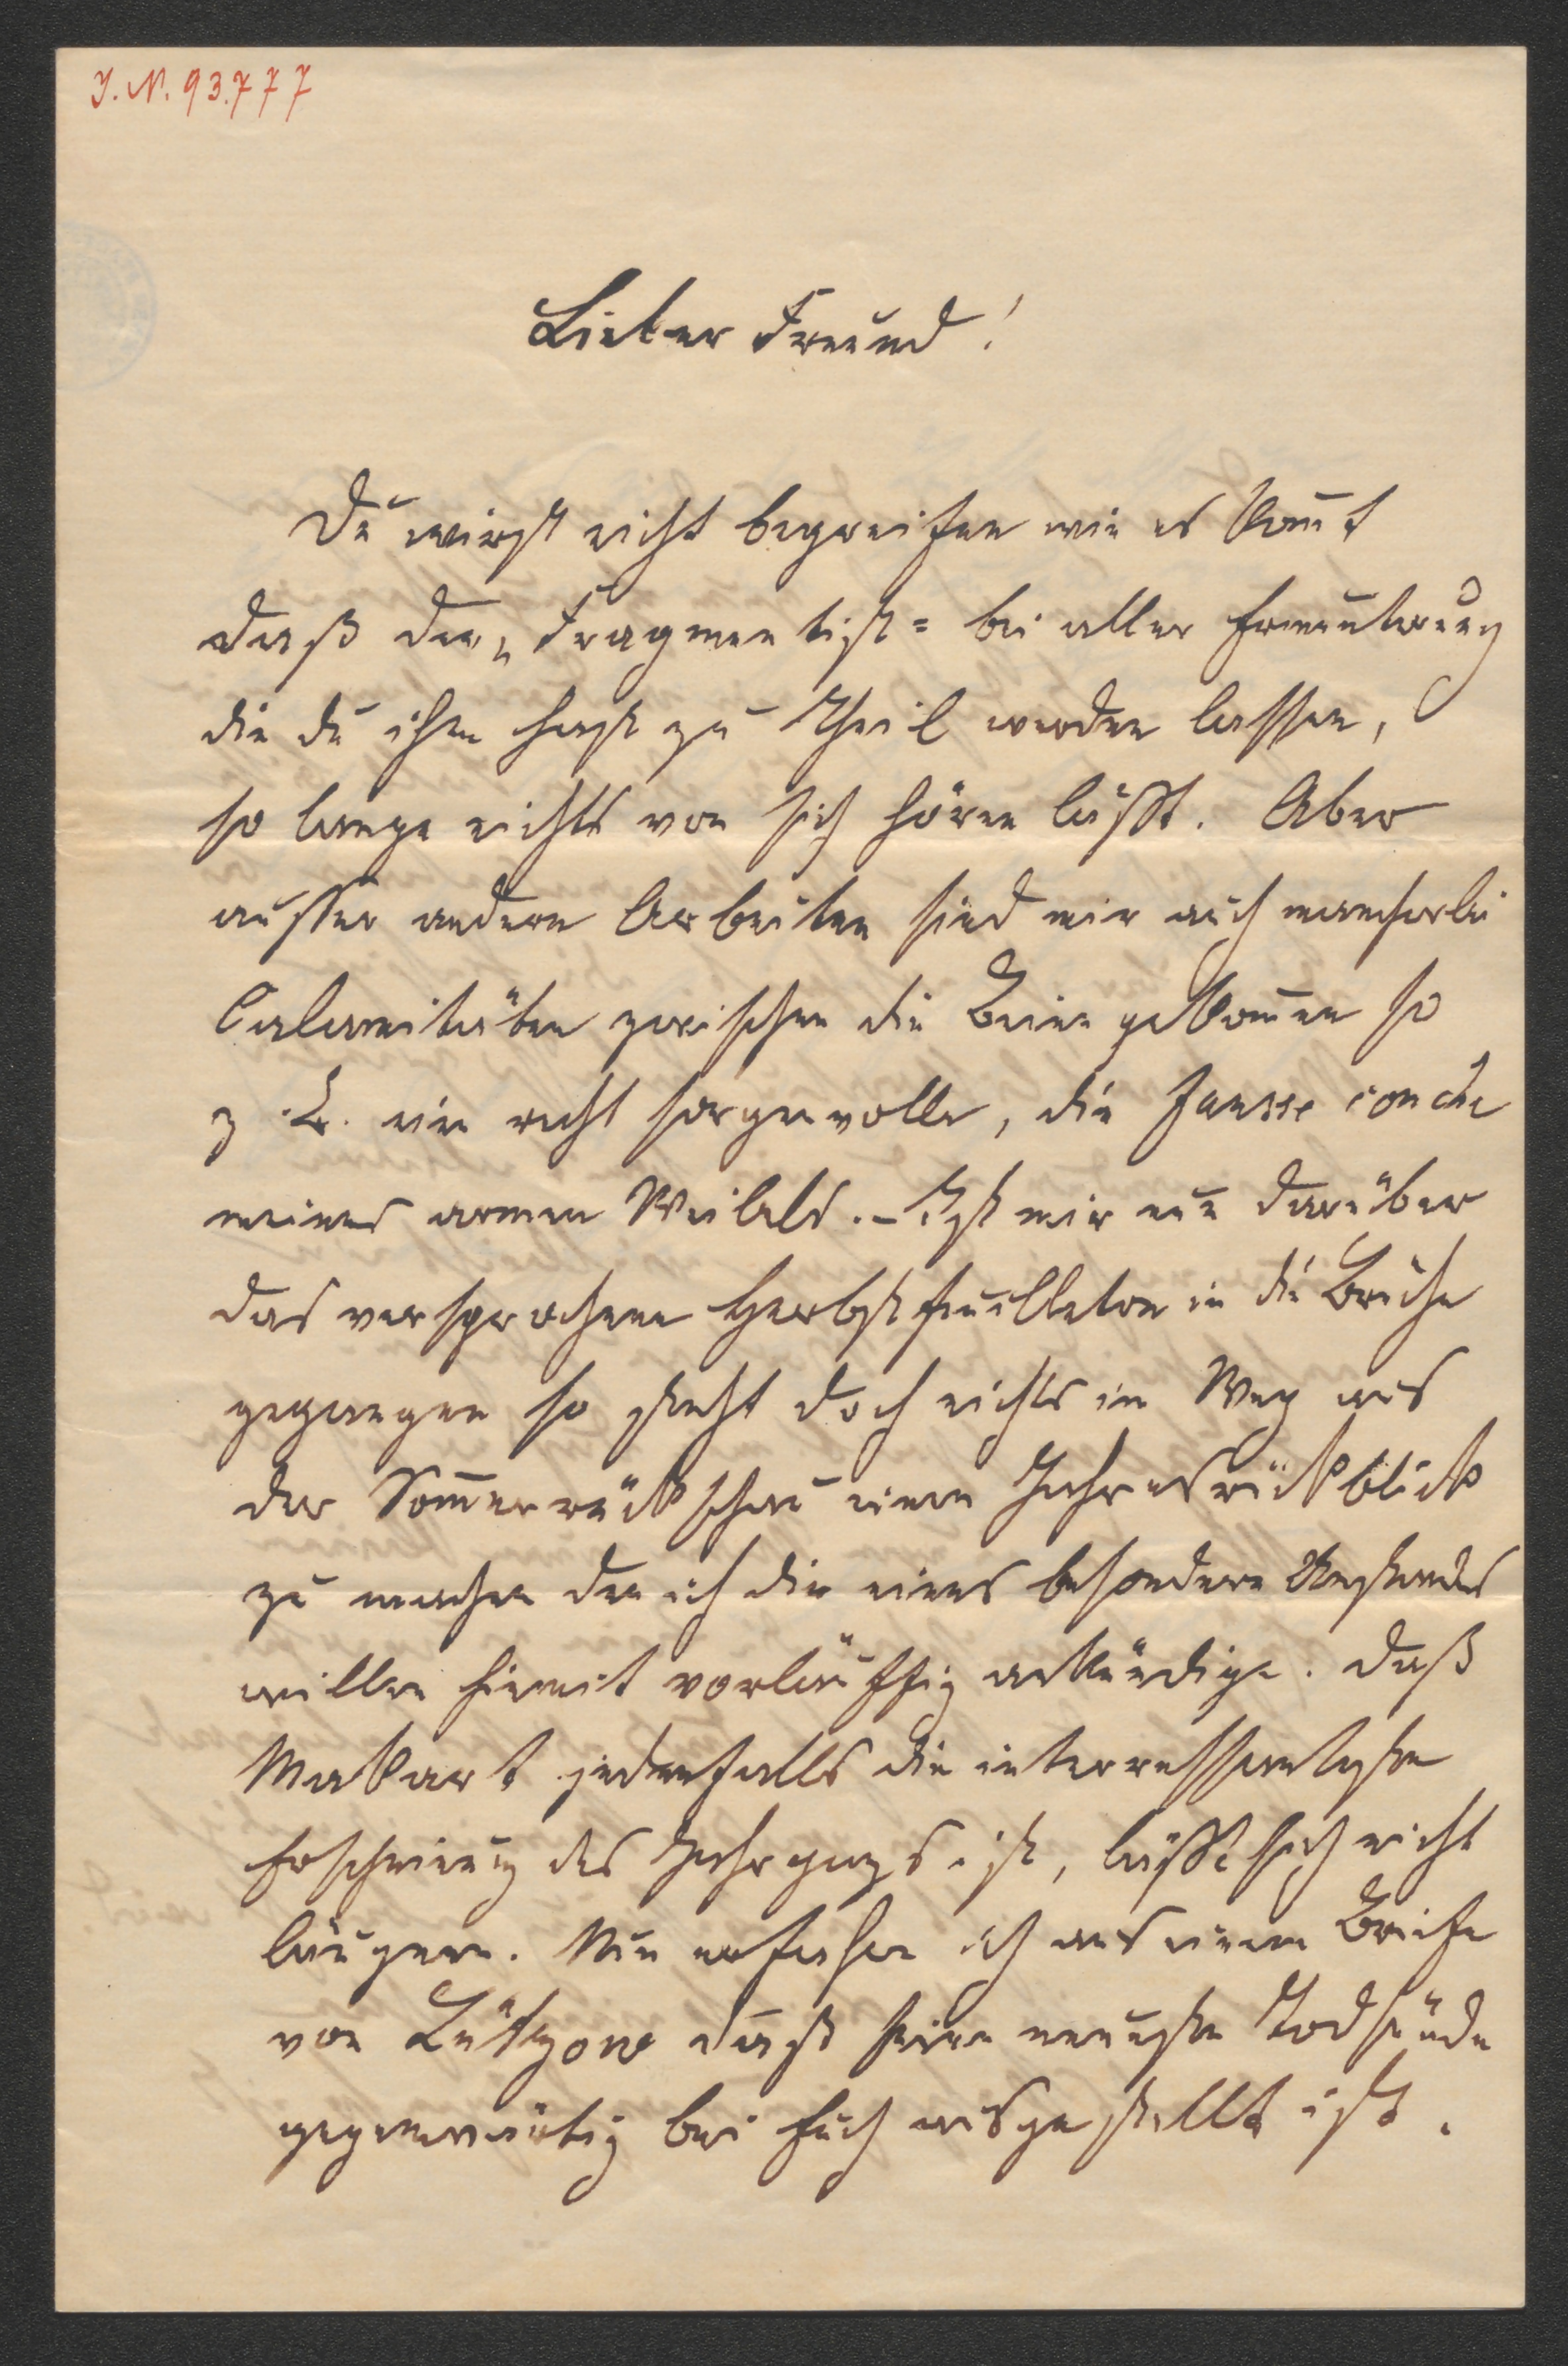 J. N. 93.777
Lieber Freund!
Du wirst nicht begreifen wie es kom̄t
daß der „Fragmentist“ bei aller Ermunterung
die du ihm hast zu Theil werden lassen,
so lange nichts von sich hören läßt. Aber
ausser andern Arbeiten sind mir auch mancherlei
Calamitäten zwischen die Beine gekom̄en so
z. B. eine recht sorgenvolle, die fausse couche
meines armen Weibels. – Ist mir nun darüber
das versprochene Herbstfeuilleton in die Brüche
gegangen so steht doch nichts im Weg aus
der Som̄errückschau einen Jahresrückblick
zu machen den ich dir eines besondern Umstandes
willen hiemit vorläuffig ankündige. Daß
Makart jedenfalls die interressanteste
Erscheinung des Jahrgangs ist, läßt sich nicht
läugnen. Nun erfahre ich aus einem Briefe
von Lützow daß seine neueste Todsünde
gegenwärtig bei Euch ausgestellt ist.